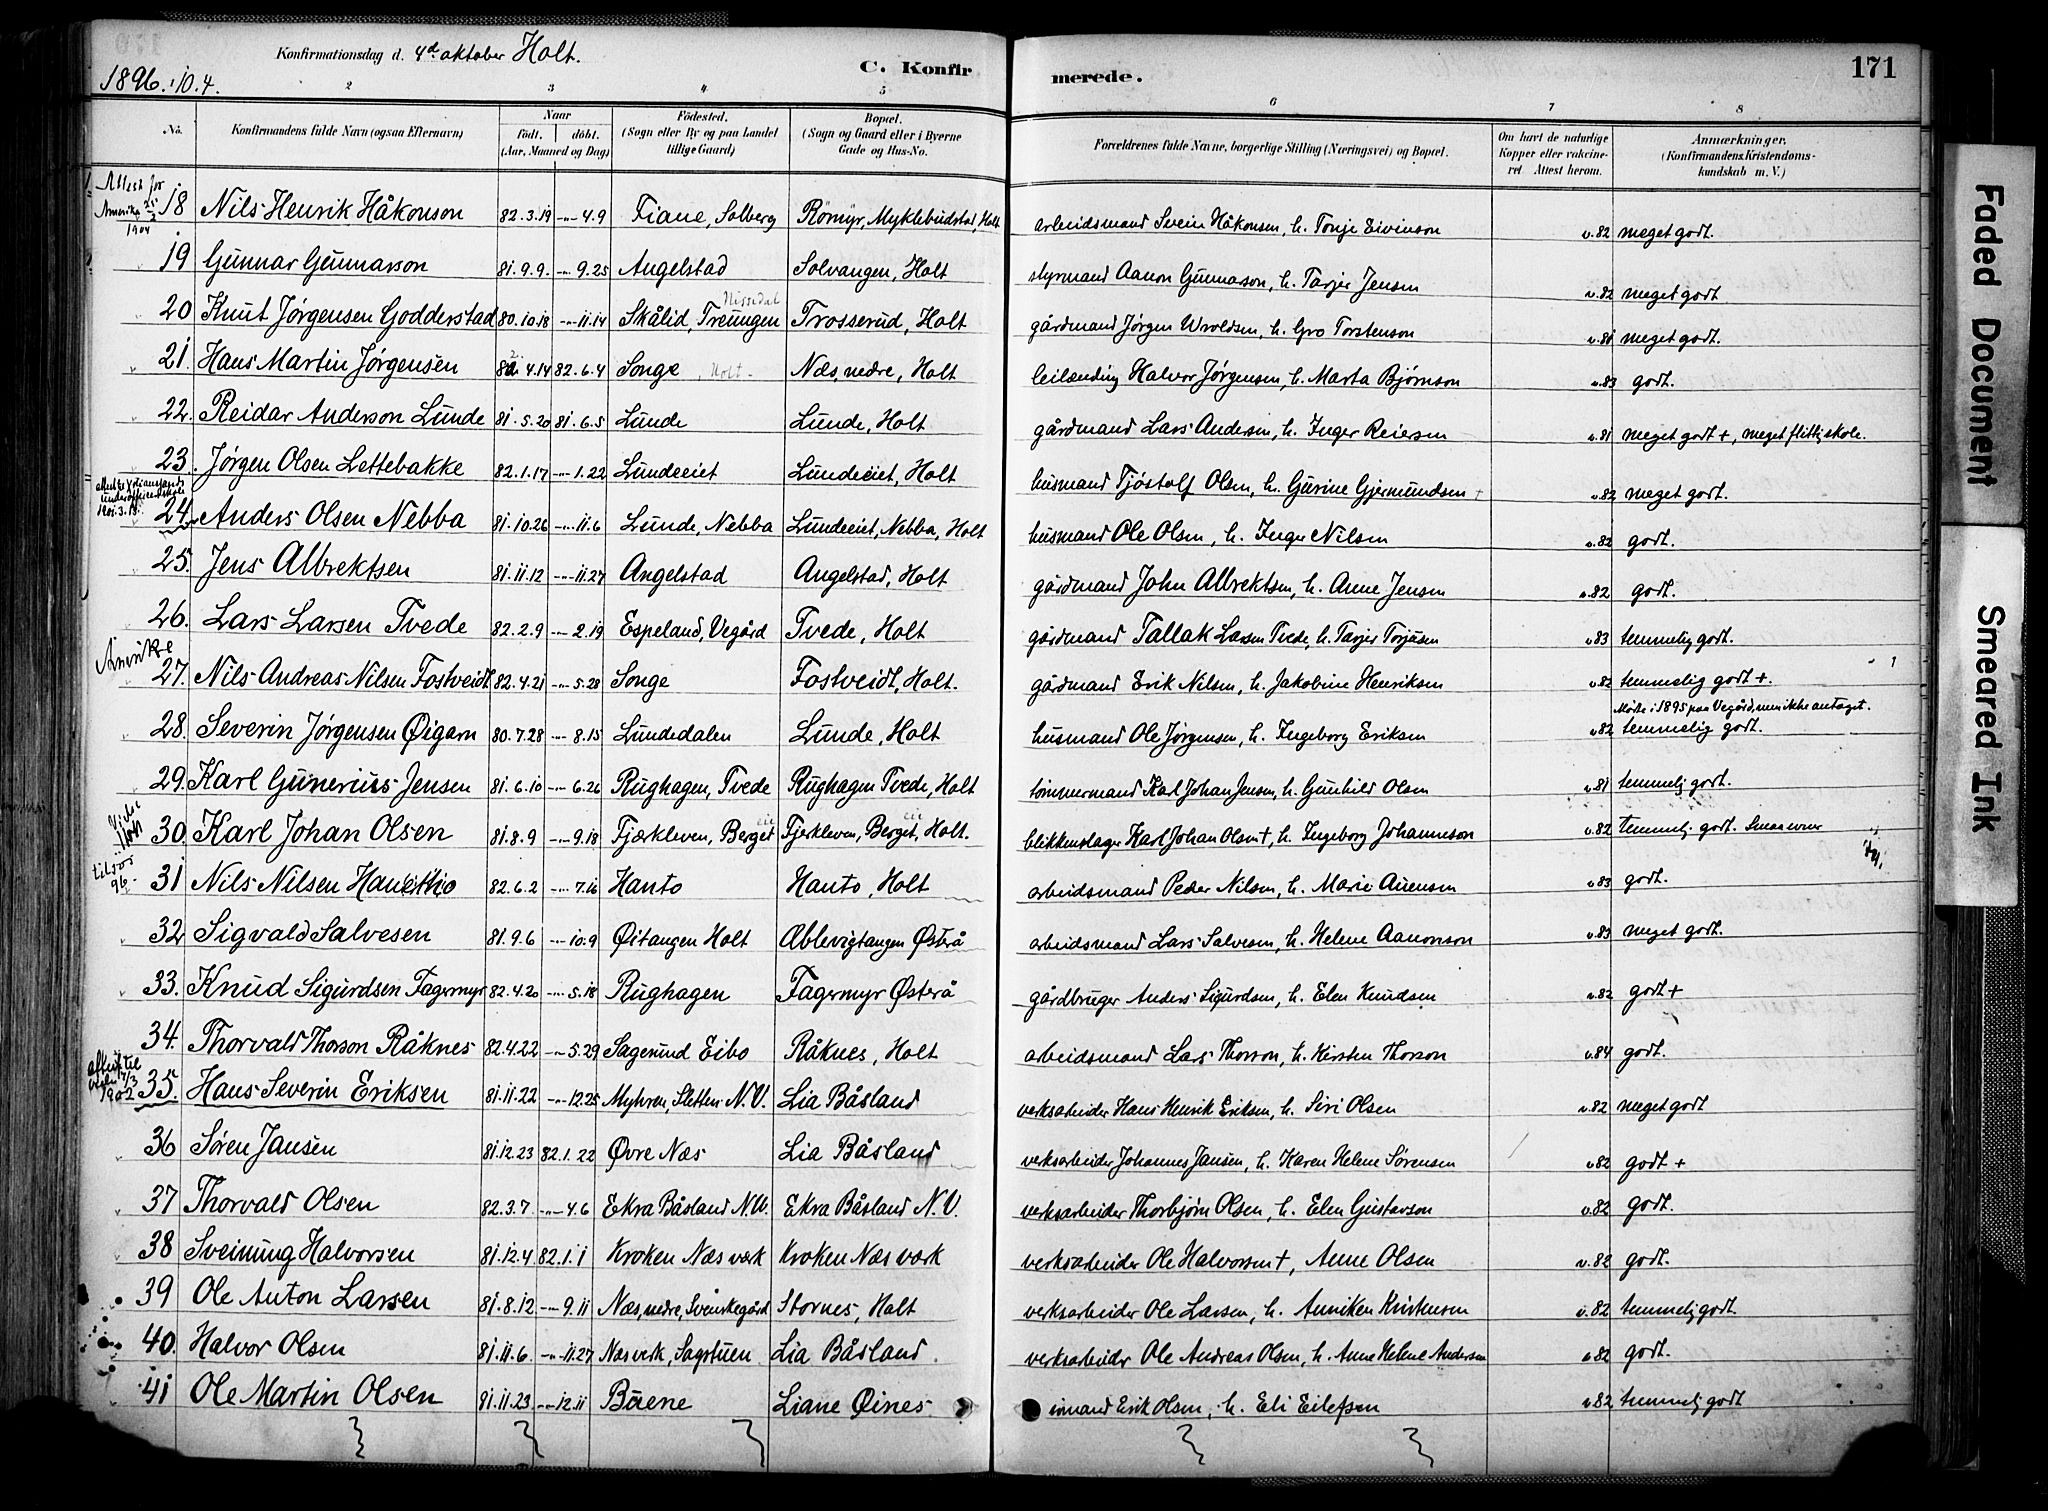 Konfirmationsdag d. 4d oktober Holt.
1896.10.4.
C. Konfir
merede.
171
2 3 4 5 6 7 8
No.
Konfirmandens fulde Navn (ogsaa Efternavn)
Naar
födt. döbt.
(Aar, Maaned og Dag)
Födested.
(Sogn eller By og paa Landet
tillige Gaard)
Bopæl.
(Sogn og Gaard eller i Byerne
Gade og Hus-No.
Forældrenes fulde Navne, borgerlige Stilling (Næringsvei) og Bopæl.
Om havt de naturlige
Kopper eller vakcine-
ret. Attest herom.
Anmærkninger.
(Konfirmandens Kristendoms-
kundskab m. V.)
Attest for
Amerika
1904
18 Nils Henrik Håkonson 82.3.19 -"- 4.9 Fiane, Solberg Römyr, Myklebudstad, Holt arbeidsmand Svein Håkonsen, h. Tonje Eivinson v.82 meget godt.
19 Gunnar Gunnarson 81.9.9. -"- 9.25 Angelstad Solvangen, Holt styrmand Aanon Gunnarson, h. Tarjer Jensen v.82 meget godt
Nissedal
20 Knut Jörgensen Godderstad 80.10.18 -"- 11.14 Skålid, Treungen Trosserud, Holt gårdmand Jörgen Wroldsen, h. Gro Torstenson v.81 meget godt.
21. Hans Martin Jörgensen 82.4.14 82.6.4 Songe Holt Næs, nedre, Holt leilænding Halvor Jörgensen, h. Marta Bjørnson v.83 godt.
22. Reidar Anderson Lunde 81.5.20 81.6.5 Lunde Lunde, Holt gårdmand Lars Andersen, h. Inger Reiersen v.81 meget godt +, meget flittj skole.
23. Jörgen Olsen Lettebakke 82.1.17 -"- 1.22 Lundeeiet Lundeeiet, Holt husmand Tjöstolf Olsen, h. Gurine Gjermundsen + v.82 meget godt.
24. Anders Olsen Nebba 81.10.26 -"- 11.6 Lunde, Nebba Lundeeiet, Nebba, Holt husmand Ole Olsen, h. Inger Nilsen v.82 godt.
25. Jens Albrektsen 81.11.12 -"- 11.27 Angelstad Angelstad, Holt gårdmand John Albrektsen, h. Anne Jensen v.82 godt.
26. Lars Larsen Tvede 82.2.9 -"- 2.19 Espeland, Vegård Tvede, Holt gårdmand Tallak Larsen Tvede, h. Tarjer Torjusen v83 temmelig godt.
Amerika
27. Nils Andreas Nilsen Fostveidt 82.4.21 -"- 5.28 Songe Fostveidt, Holt. gårdmand Erik Nilsen, h. Jakobine Henriksen v82 temmelig godt +.
Mødte i 1895 paa Vegård, men ikke antaget.
28. Severin Jörgensen Øigarn 80.7.28 -"- 8.15 Lundedalen Lunde, Holt husmand Ole Jørgensen, h. Ingeborg Eriksen v82 temmelig godt.
29. Karl Gunerius Jensen 81.6.10 -"- 6.26 Rughagen, Tvede Rughagen Tvede, Holt tömmermand Karl Johan Jensen, h. Gunhild Olsen v.81 temmelij godt.
30. Karl Johan Olsen 81.8.9 -"- 9.18 Fjærkleven, Berget eie Fjerkleven, Berget, eie Holt. blikkenslager Karl Johan Olsen +, h. Ingeborg Johanneson v.82 temmelj. godt.
31 Nils Nilsen 82.6.2 -"- 7.16 Hanto Hanto, Holt arbeidsmand Peder Nilsen, h. Marie Auensen v.83 godt.
32 Sigvald Salvesen 81.9.6 -"- 10.9 Øitangen Holt Ablevigtangen Østerå arbeidsmand Lars Salvesen, h. Helene Aanonson v.83 meget godt.
33. Knud Sigurdsen Fagermyr 82.4.20 -"- 5.18 Rughagen Fagermyr Østerå gårdbruger Anders Sigurdsen, h. Elen Knudsen v.82 godt +
34. Thorvald Thorson Råknes 82.4.22 -"- 5.29 Sagerund Eibo Råknes, Holt arbeidsmand Lars Thorson, h. Kirsten Thorson v.84 godt.
1902
35. Hans Severin Eriksen 81.11.22 -"- 12.25 Myhren, Sletten N.V. Lia Båsland verksarbeider Hans Henrik Eriksen, h. Siri Olsen v.82 meget godt
36 Sören Jansen 81.12.23 82.1.22 Øvre Næs Lia Båsland verksarbeider Johannes Jansen, h. Karen Helene Sørensen v82 godt +
37 Thorvald Olsen 82.3.7. -"- 4.6 Ekra Båsland N.V. Ekra Båsland N.V. verksarbeider Thorbjørn Olsen, h. Elen Gustavson v.82 godt.
38 Sveinung Halvorsen 81.12.4 82.1.1 Kroken Næs værk Kroken Næs værk verksarbeider Ole Halvorsen +, Anne Olsen v.82 godt.
39 Ole Anton Larsen 81.8.12 -"- 9.11 Næs, nedre, Svenskegård Stornes, Holt verksarbeider Ole Larsen, h. Anniken Kristensen v.82 temmelj godt.
40. Halvor Olsen 81.11.6. -"- 11.27 Næsverk, Sagstuen Lia Båsland. verksarbeider Ole Andreas Olsen, h. Anne Helene Andersen v82 godt.
41 Ole Martin Olsen 81.11.23. -"- 12.11 Buene Liane Øines. inmand Erik Olsen, h. Eli Eilefsen v.82 temmelj godt
Faded Document
Smeared Ink